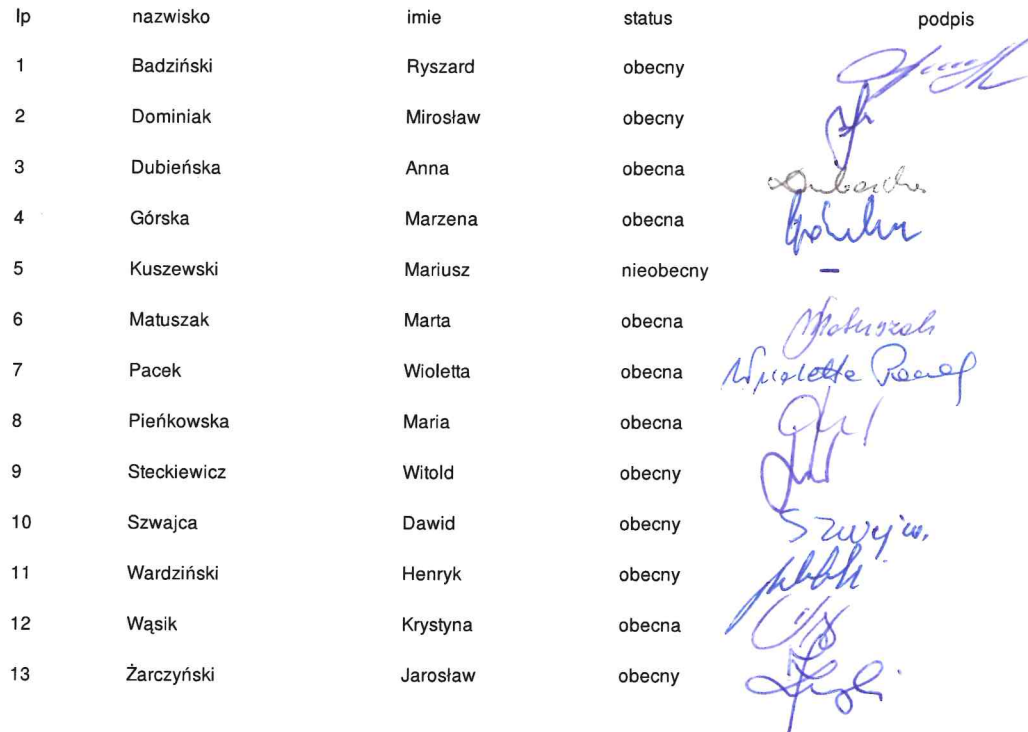 lp nazwisko imie status podpis
1 Badziński Ryszard obecny
2 Dominiak Mirosław obecny
3 Dubieńska Anna obecna
4 Górska Marzena obecna
5 Kuszewski Mariusz nieobecny –
6 Matuszak Marta obecna Matuszak
7 Pacek Wioletta obecna Wioletta Pacek
8 Pieńkowska Maria obecna
9 Steckiewicz Witold obecny
10 Szwajca Dawid obecny
11 Wardziński Henryk obecny
12 Wąsik Krystyna obecna
13 Żarczyński Jarosław obecny